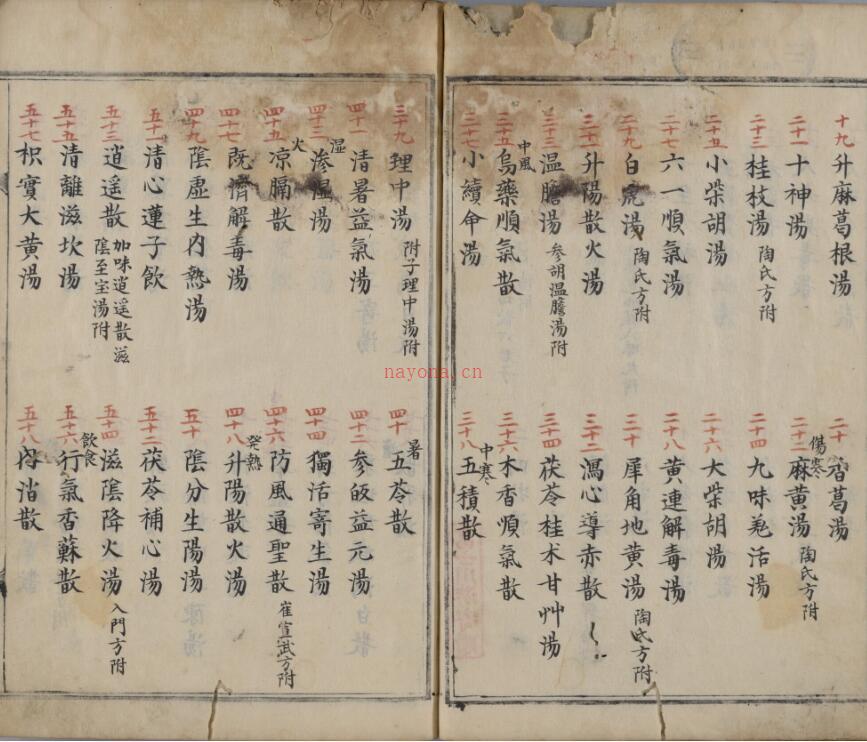 十九 升麻葛根湯
二十 香葛湯
二十一 十神湯
傷寒
二十二 麻黃湯 陶氏方附
二十三 桂枝湯 陶氏方附
二十四 九味羌活湯
二十五 小柴胡湯
二十六 大柴胡湯
二十七 六一順氣湯
二十八 黃連解毒湯
二十九 白虎湯 陶氏方附
三十 犀角地黃湯 陶氏方附
三十一 升陽散火湯
三十二 瀉心導赤散
三十三 温膽湯 參胡温膽湯附
三十四 茯苓桂朮甘艸湯
中風
三十五 烏藥順氣散
三十六 木香順氣散
三十七 小續命湯
中寒
三十八 五積散
三十九 理中湯 附子理中湯附
暑
四十 五苓散
四十一 清暑益氣湯
四十二 參皈益元湯
湿
四十三 滲湿湯
四十四 獨活寄生湯
火
四十五 凉膈散
四十六 防風通聖散 崔宣武方附
四十七 既濟解毒湯
發熱
四十八 升陽散火湯
四十九 陰虛生內熱湯
五十 陰分生陽湯
五十一 清心蓮子飲
五十二 茯苓補心湯
五十三 逍遥散 加味逍遥散滋
陰至宝湯附
五十四 滋陰降火湯 入門方附
五十五 清離滋坎湯
飲食
五十六 行氣香蘇散
五十七 枳實大黃湯
五十八 內消散
nayona.cn